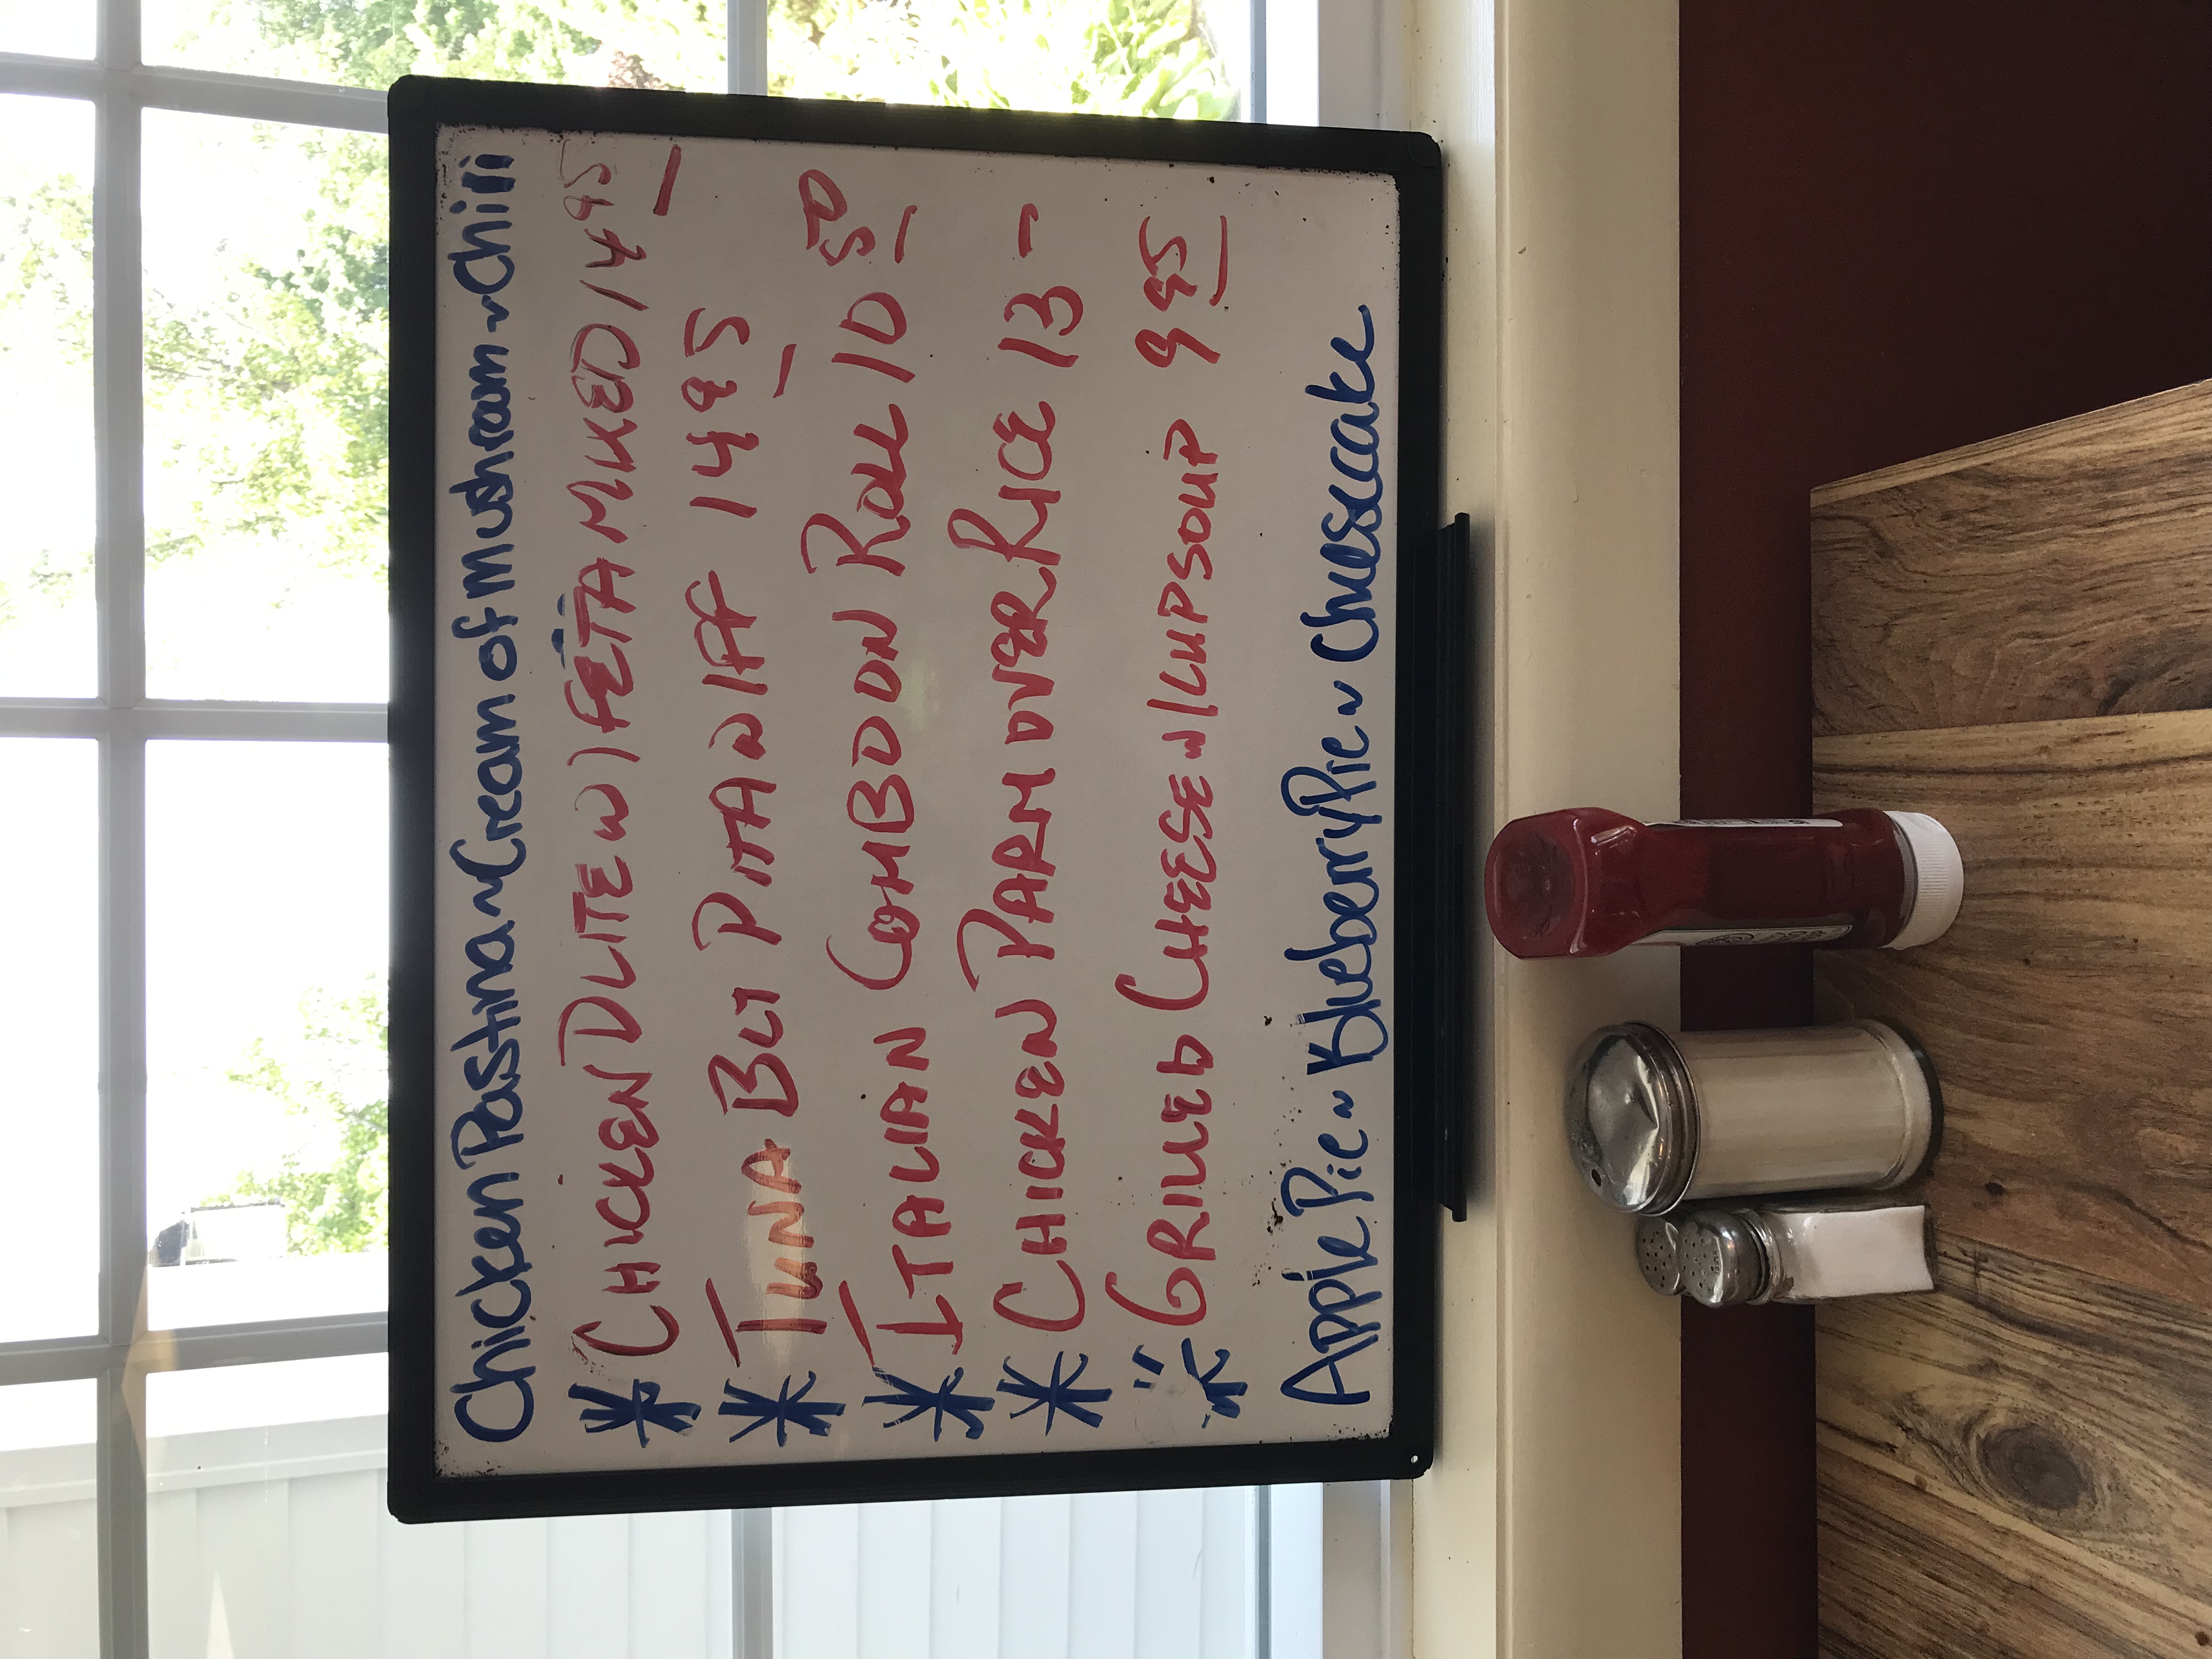 Chicken Pastina ~ Cream of Mushroom ~ Chili
* CHICKEN DLITE W/ FETA MLKED 14 95
* TUNA BLT PITA W/FF 14 95
* ITALIAN COMBO ON ROLL 10 50
* CHICKEN PARM OVER RICE 13 -
* GRILLED CHEESE W/CUP SOUP 9 95
Apple Pie ~ Blueberry Pie ~ Cheescake